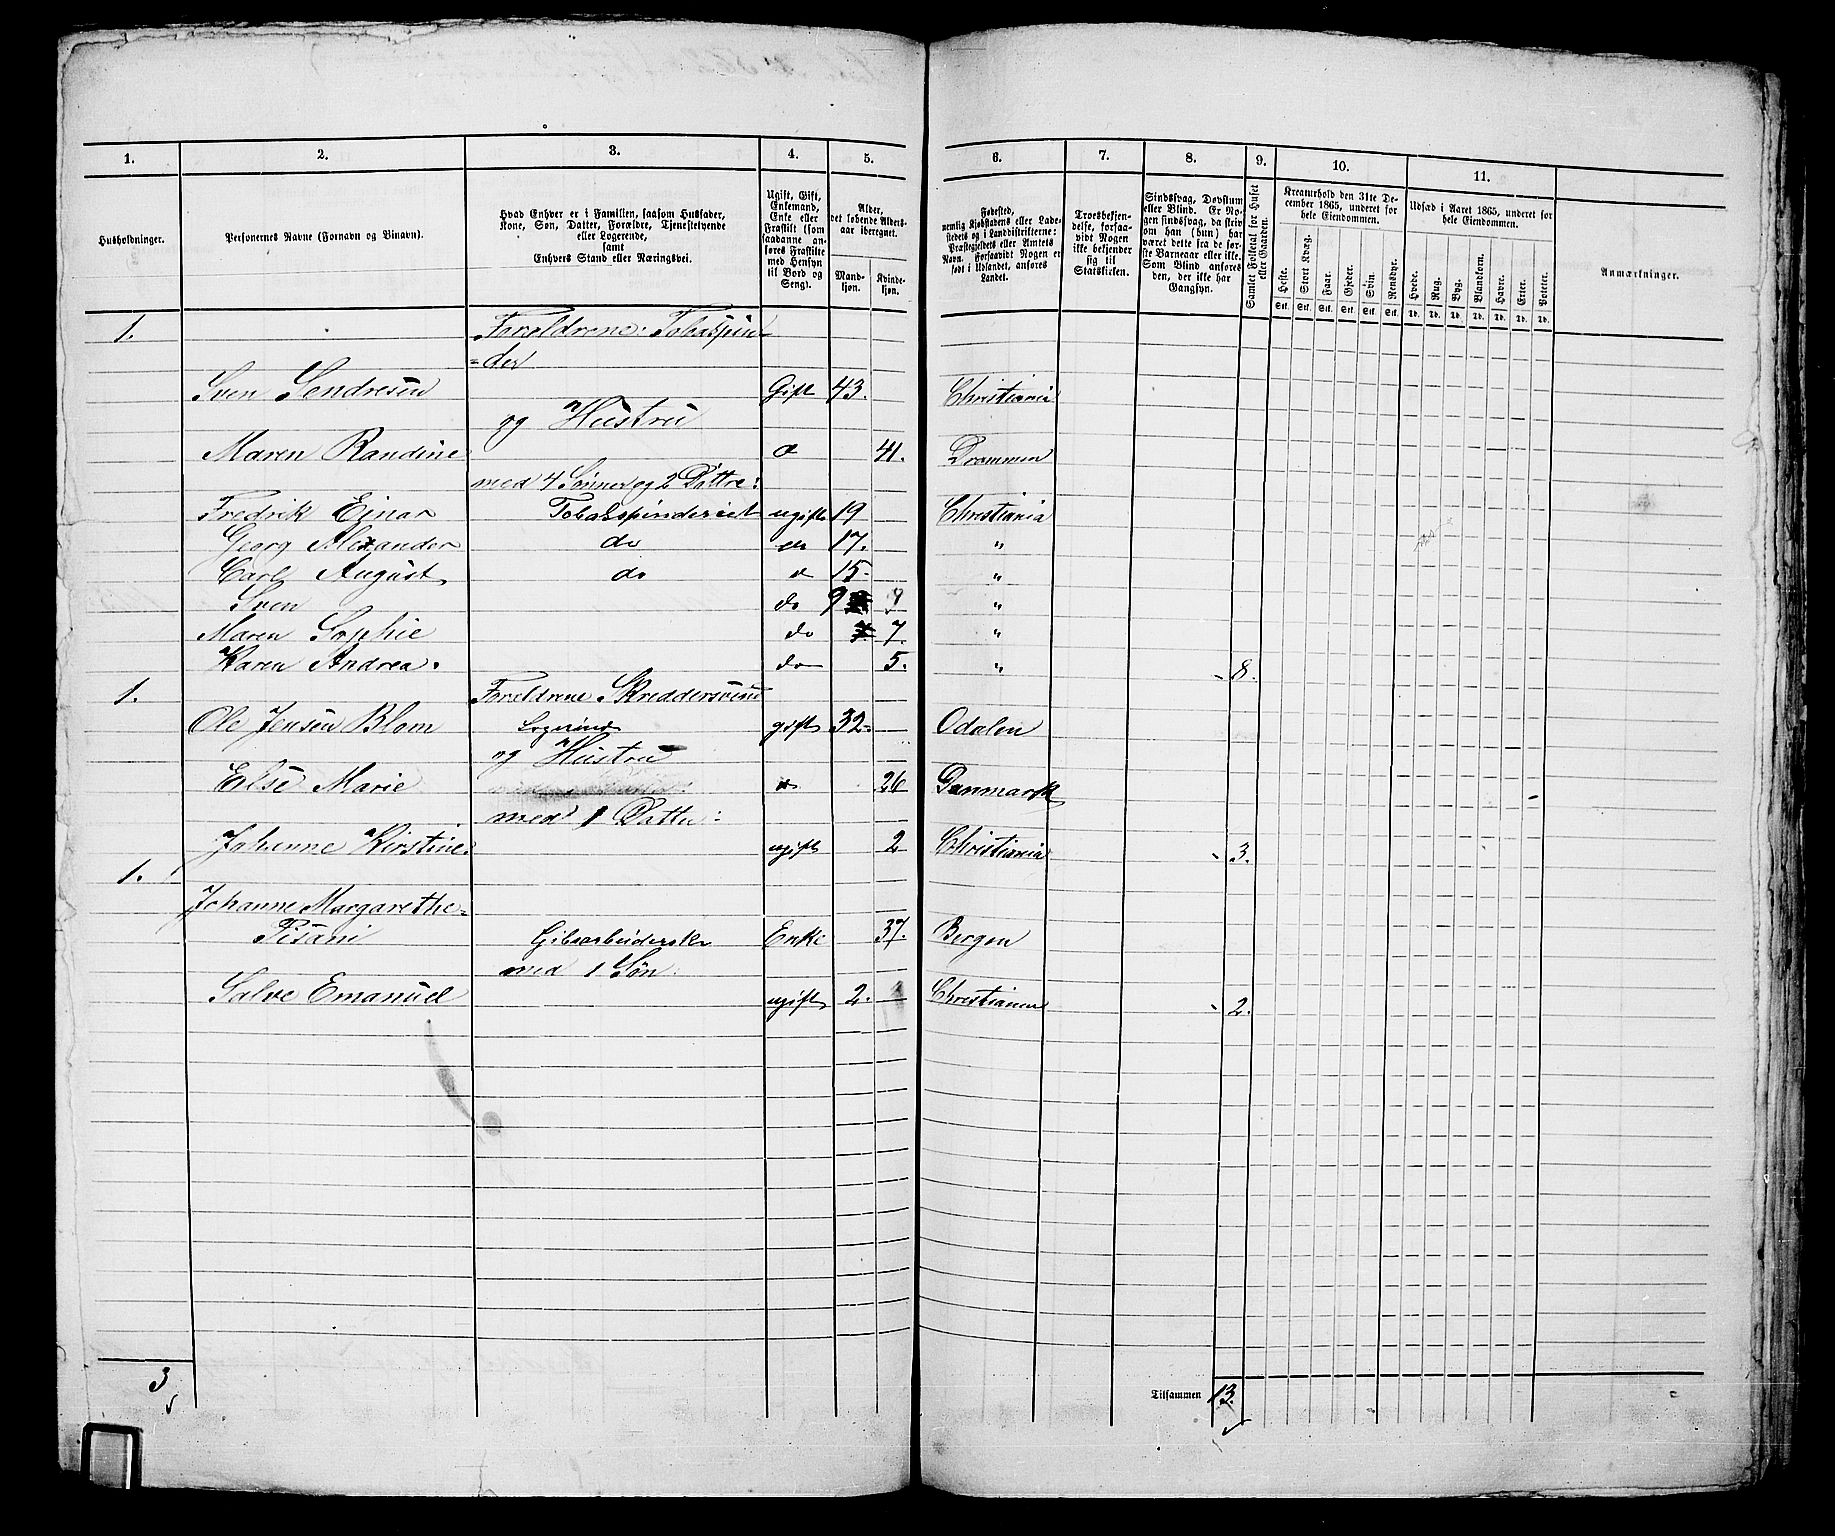 1. 2. 3. 4. 5. 6. 7. 8. 9. 10. 11.
Husholdninger.
Personernes Navne (Fornavn og Tilnavn).
Hvad Enhver er i Familien, saasom Husfader,
Kone, Søn, Datter, Forældre, Tjenestetyende
eller Logerende,
samt
Enhvers Stand eller Næringsvei.
Ugift, Gift,
Enkemand,
Enke eller
Fraskilt (som
saadanne an-
føres Fraskilte
med Hensyn
til Bord og
Seng).
Alder,
det løbende Alders-
aar iberegnet.
Mand-
kjøn.
Kvinde-
kjøn.
Fødested,
nemlig Kjøbstadens eller Lade-
stedets og i Landdistrikterne:
Præstegjeldets eller Amtets
Navn. Forsaavidt Nogen er
født i Udlandet, anføres
Landet.
Troesbekjen-
delse, forsaa-
vidt Nogen
ikke bekjender
sig til
Statskirken.
Sindssvag, Døvstum
eller Blind. Er No-
gen sindssvag, da skriv
om han (hun) har
været dette fra de før-
ste Barneaar eller ikke.
Som Blind anføres
den, der ikke har
Gangsyn.
Samlet Folketal for Huset
eller Gaarden.
Kreaturhold den 31te De-
cember 1865, underet for
hele Eiendommen.
Heste. Stort Kvæg. Faar. Gjeder. Svin. Rensdyr.
Stk. Stk. Stk. Stk. Stk. Stk.
Udsæd i Aaret 1865, underet for
hele Eiendommen.
Hvede. Rug. Byg. Blandkorn. Havre. Erter. Poteter.
Td. Td. Td. Td. Td. Td. Td.
Anmærkninger.
1. Foreldrene: Tobaspin
=der
Sven Sendresen Gift 43. Christiania
og Hustru
Maren Randine 41. Drammen
med 4 Sønner og 2 Døttre:
Fredrik Ejnar Tobaspinderiet ugift 19 Christiania
Georg Alexander do do 17. "
Carl August do 15. "
Sven do 9 "
Maren Sophie do 7. "
Karen Andrea. do 5. " 8.
1. Foreldrene Skreddersvend
Ole Jensen Blom Logerende gift 32. Odalen
og Hustru
Else Marie 26 Danmark
med 1 Datter:
Johanne Kirstine ugift 2 Christiania 3.
1.
Johanne Margarethe
Pisani Gibsarbeiderske Enke 37. Bergen
med 1 Søn:
Salve Emanuel ugift 2. Christiania 2.
3 Tilsammen 13.